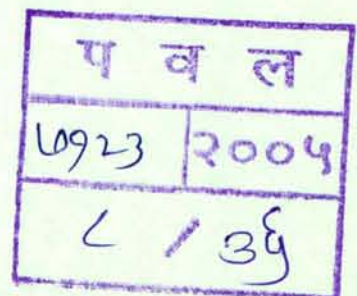 प व ल
७१२३ २००५
८ / ३६